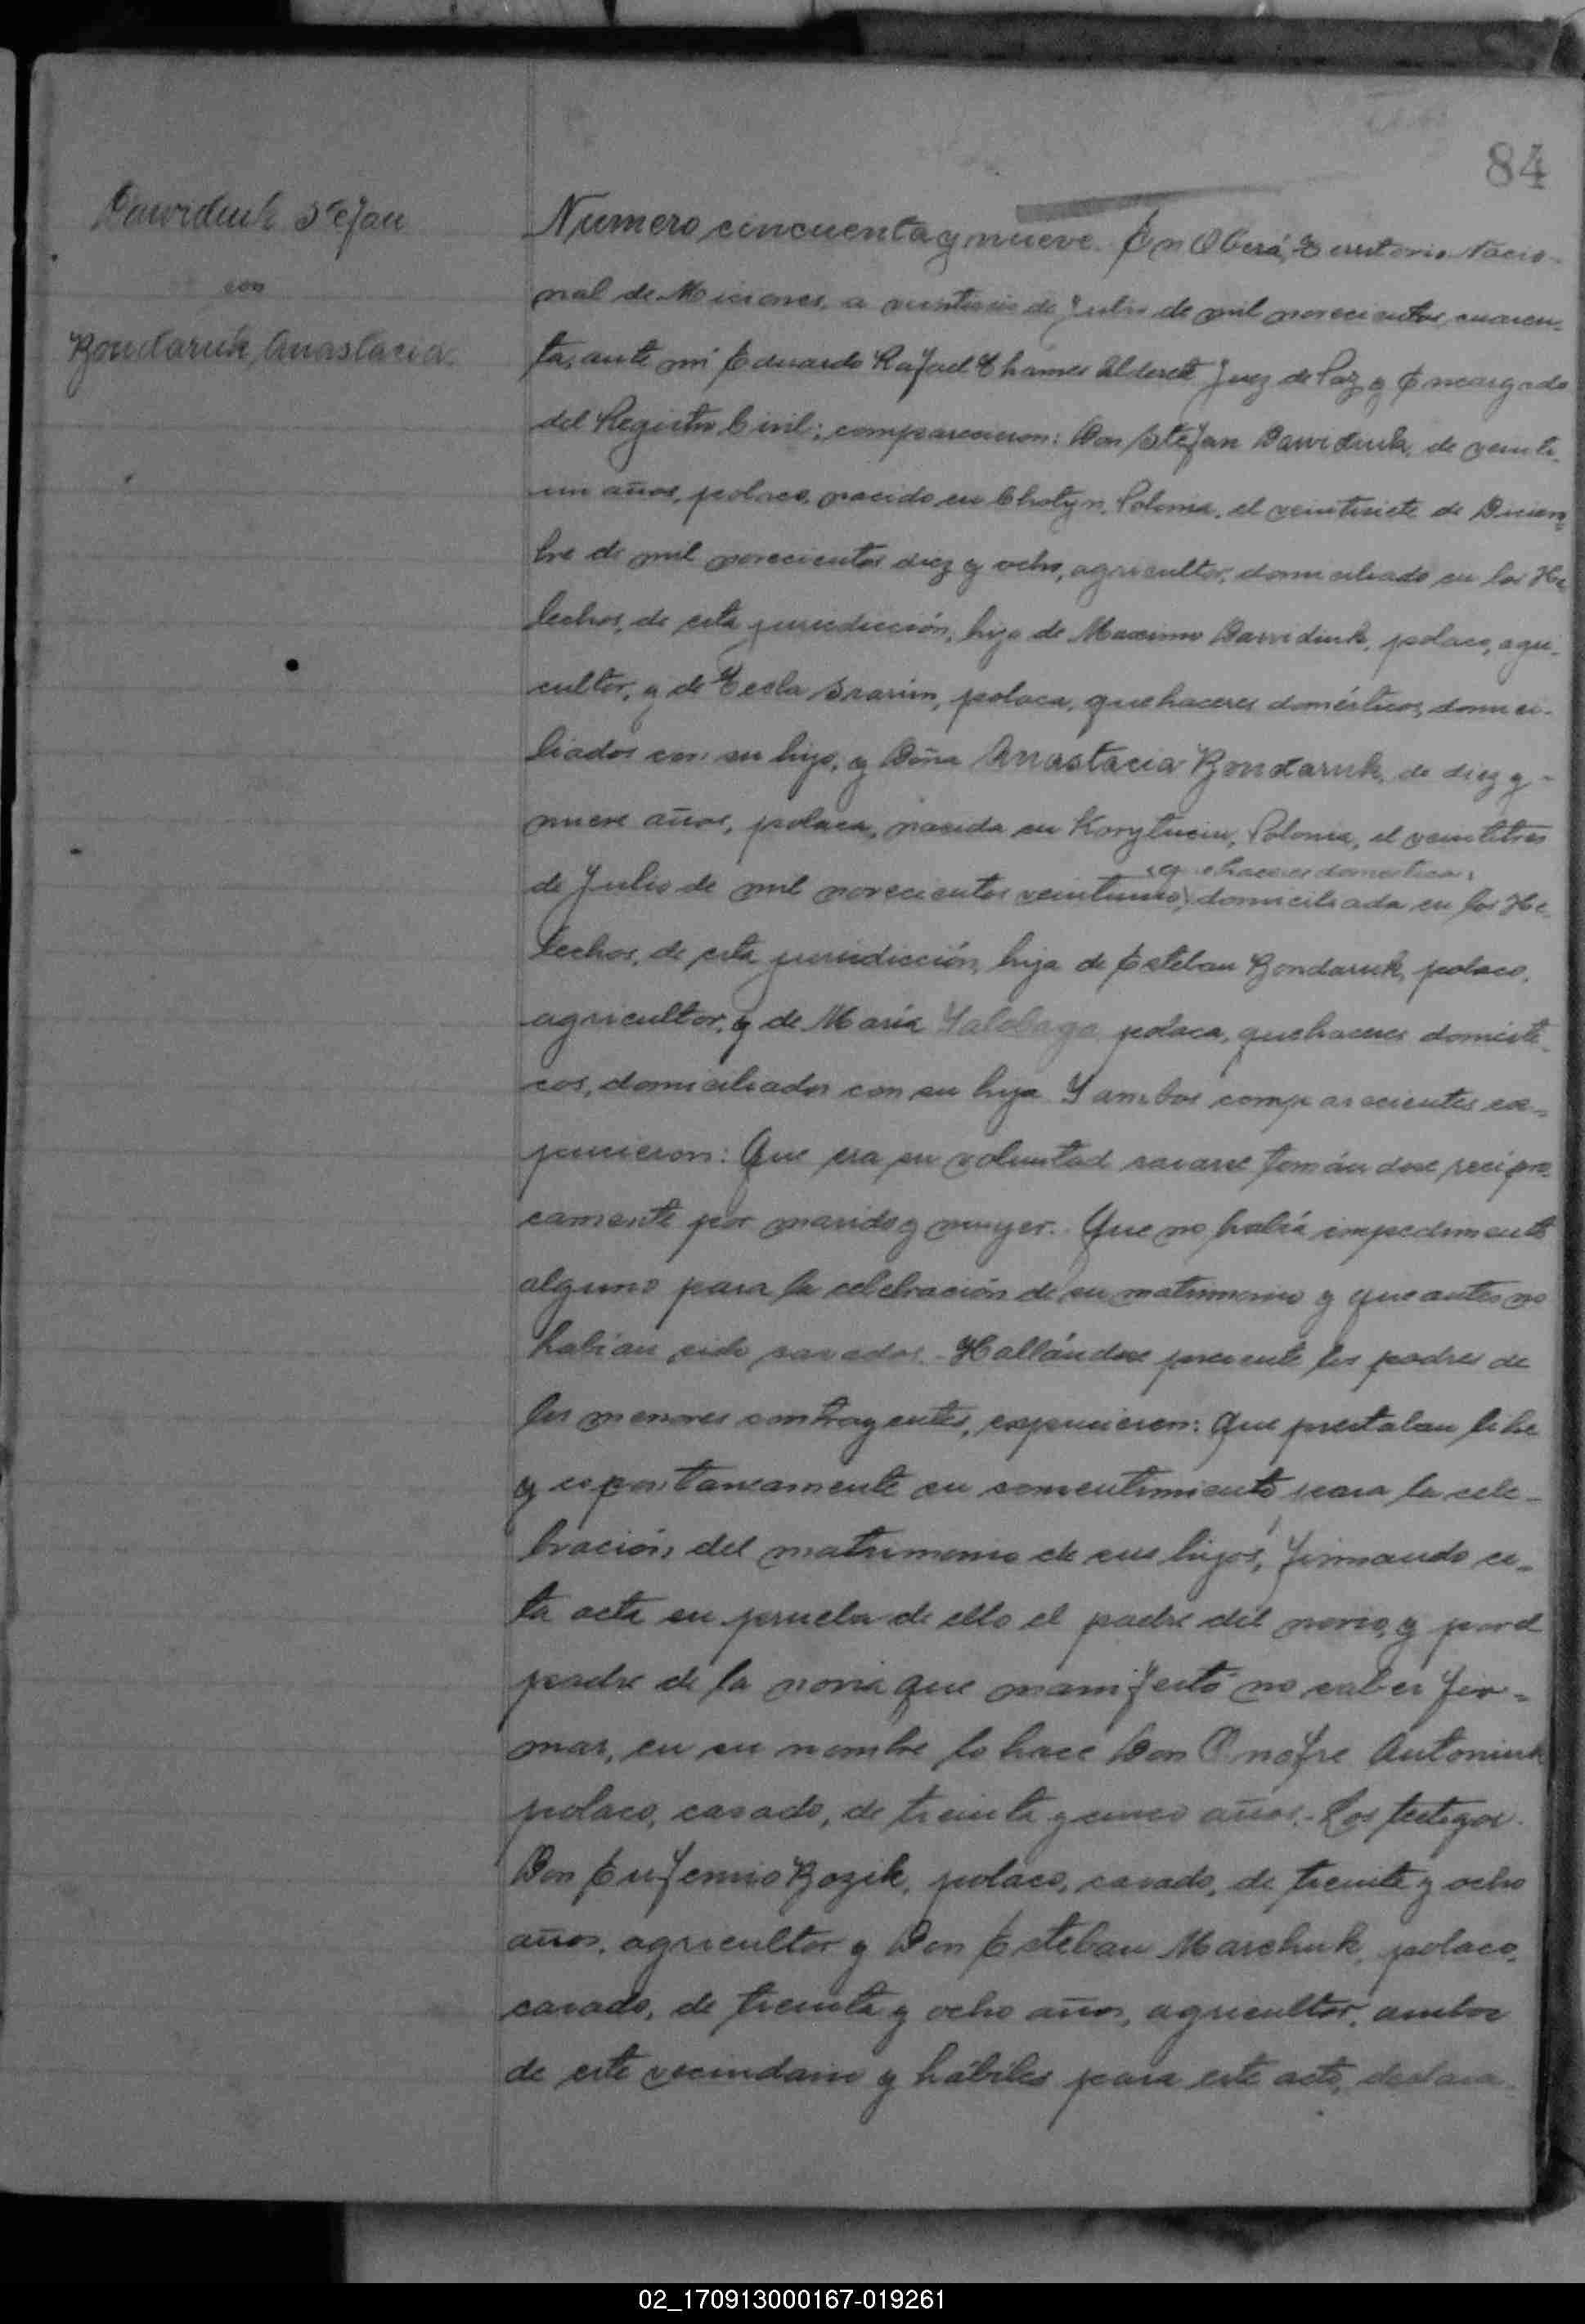 84
Dawidiuk Stefan
con
Bondaruk, Anastacia
Numero cincuenta y nueve. En Oberá, Territorio Nacio-
nal de Misiones, a veintiseis de Julio de mil novecientos cuaren-
ta, ante mi Eduardo Rafael Thames Alderete Juez de Paz y Encargado
del Registro Civil; comparecieron: Don Stefan Dawidiuk, de veinti-
un años, polaco, nacido en Chotyn, Polonia, el veintisiete de Diciem-
bre de mil novecientos diez y ocho, agricultor, domiciliado en los He-
lechos, de esta jurisdicción, hijo de Maximo Dawidiuk, polaco, agri-
cultor, y de Tecla, polaca, quehaceres domésticos, domici-
liados con su hijo, y Doña Anastacia Bondaruk, de diez y
nueve años, polaca, nacida en, Polonia, el veintitres
, quehaceres domesticos,
de Julio de mil novecientos veintiuno, domiciliada en los He-
lechos, de esta jurisdicción, hija de Esteban Bondaruk, polaco,
agricultor, y de María polaca, quehaceres domésti-
cos, domiciliados con su hija. Y ambos comparecientes ex-
pusieron: Que era su voluntad casarse tomándose recipro-
camente por marido y mujer. Que no había impedimento
alguno para la celebración de su matrimonio y que antes no
habían sido casados. - Hallándose presente los padres de
los menores contrayentes, expusieron: Que prestaban libre
y espontaneamente su consentimiento para la cele-
bración del matrimonio de sus hijos, firmando es-
ta acta en prueba de ello el padre del novio, y por el
padre de la novia que manifestó no saber fir-
mar, en su nombre lo hace Don Onofre Antoniuk
polaco, casado, de treinta y cinco años. - Los testigos
Don Eufemio Bozik, polaco, casado, de treinta y ocho
años, agricultor y Don Esteban Marchuk, polaco,
casado, de treinta y ocho años, agricultor, ambos
de este vecindario y hábiles para este acto, declara-
02_170913000167-019261